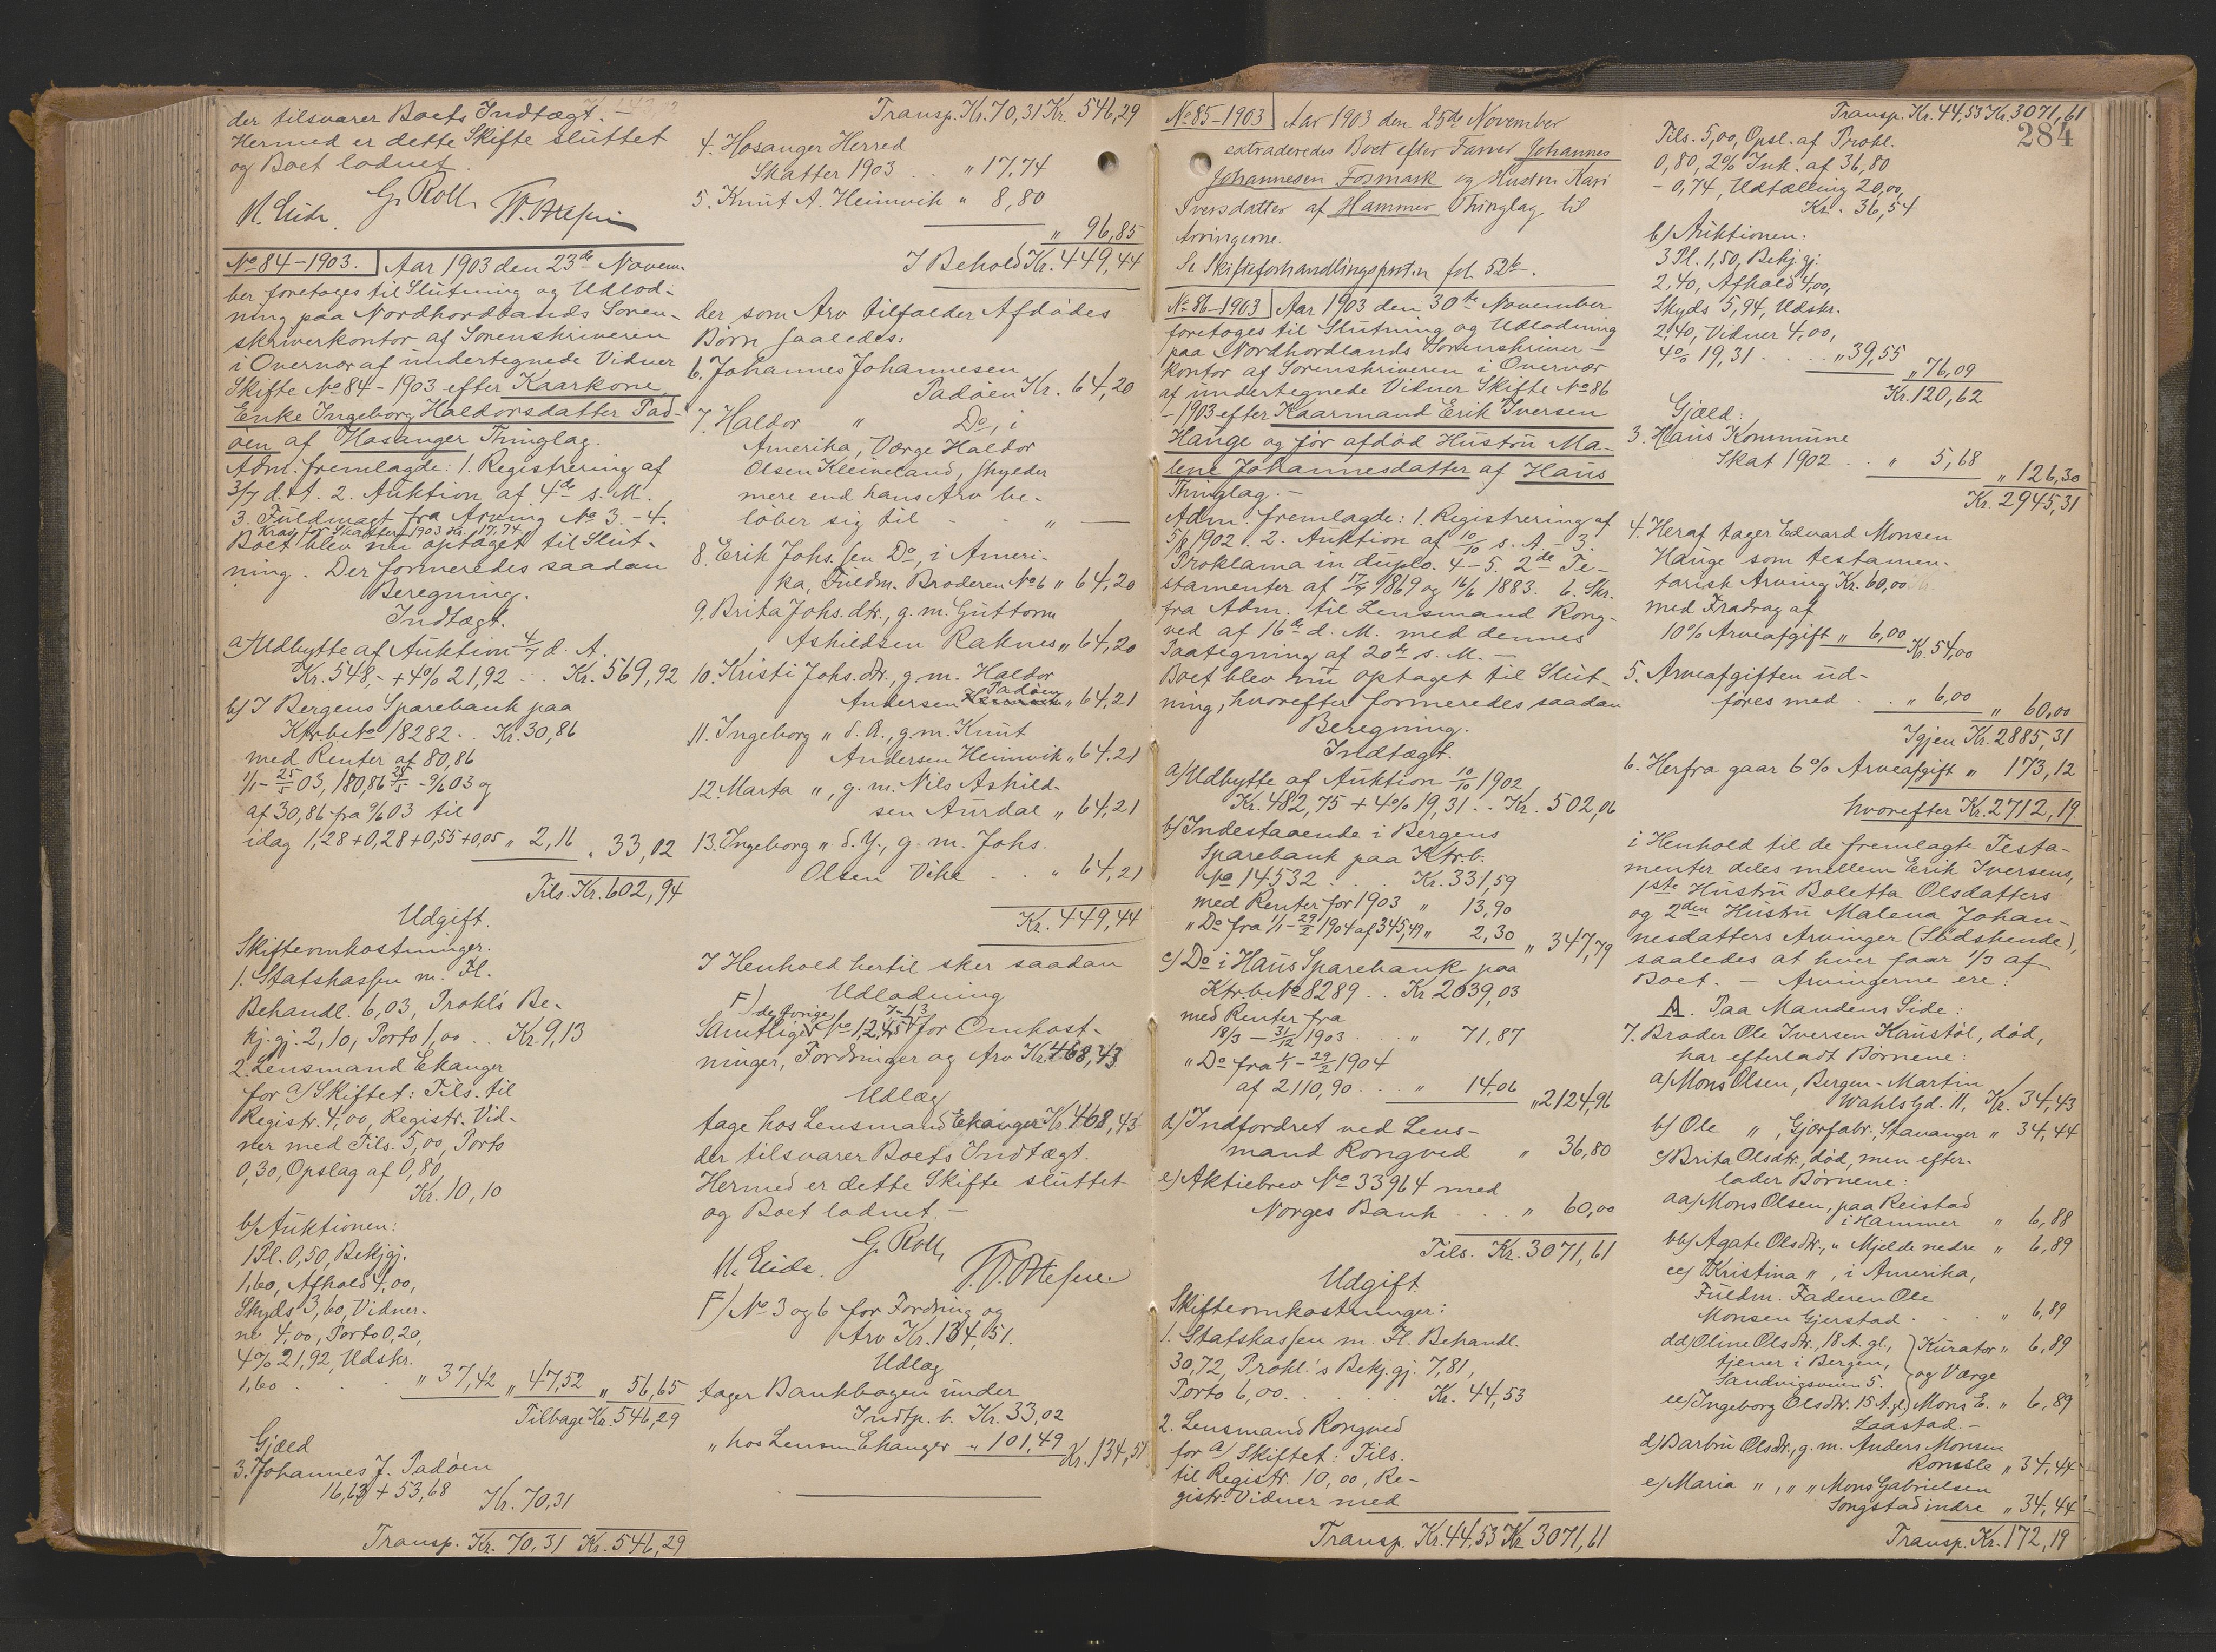 der tilsvarer Boets Indtægt. –
Hermed er dette Skifte sluttet
og Boet lodnet.
M. Eide. G. Roll
No 84 – 1903. Aar 1903 den 23de Novem-
ber foretoges til Slutning og Udlod-
ning paa Nordhordlands Soren-
skriverkontor af Sorenskriveren
i Overvær af undertegnede Vidner
Skifte No 84 – 1903 efter Kaarkone
Enke Ingeborg Haldorsdatter Pad-
öen af Hosanger Thinglag.
Adm. fremlagde: 1. Registrering af
3/7 d. A. 2. Auktion af 4de s. M.
3. Fuldmagt fra Arving No 3 – 4.
Krav for Skatter 1903 Kr. 17,74
Boet blev nu optaget til Slut-
ning. Der formeredes saadan
Beregning.
Indtægt.
a/ Udbytte af Auktion 4/7 d. A.
Kr. 548,- + 4% 21,92 .. Kr. 569,92
b/ I Bergens Sparebank paa
Ktrb. No 18282 .. Kr. 30,86
med Renter af 80,86
1/1 – 25/5 03, 180,86 25/5 – 9/6 03 og
af 30,86 fra 9/6 03 til
idag 1,28 + 0,28 + 0,55 + 0,05 „ 2,16 „ 33,02
Tils. Kr. 602,94
Udgift.
Skifteomkostninger.
1. Statskassen m. Fl.
Behandl. 6,03, Prokl's Be-
kj.gj. 2,10, Porto 1,00 .. Kr. 9,13
2. Lensmand Ekanger
for a/ Skiftet: Tils. til
Registr. 4,00, Registr. Vid-
ner med Tils. 5,00, Porto
0,30, Opslag af 0,80,
Kr. 10,10
b/ Auktionen:
1 Pl. 0,50, Bekjgj.
1,60, Afhold 4,00,
Skyds 3,60, Vidner-
ne 4,00, Porto 0,20,
4% 21,92, Udskr.
1,60 . . . „ 37,42 „ 47,52 „ 56,65
Tilbage Kr. 546,29
Gjæld
3. Johannes J. Padöen
16,63 + 53,68 Kr. 70,31
Transp. Kr. 70,31 Kr. 546,29
Transp. Kr. 70,31 Kr. 546,29
4. Hosanger Herred
Skatter 1903 . . „ 17,74
5. Knut A. Heimvik „ 8,80
„ 96,85
I Behold Kr. 449,44
der som Arv tilfalder Afdödes
Börn saaledes:
6. Johannes Johannesen
Padöen Kr. 64,20
7. Haldor „ Do, i
Amerika, Værge Haldor
Olsen Kleiveland, skylder
mere end hans Arv be-
löber sig til . . „ —
8. Erik Johs.sen Do, i Ameri-
ka, Fuldm. Broderen No 6 „ 64,20
9. Brita Johs. dtr., g. m. Guttorm
Askildsen Raknes „ 64,20
10. Kristi Johs. dtr., g. m. Haldor
Andersen Padöen „ 64,21
11. Ingeborg „ d. Æ., g. m. Knut
Andersen Heimvik „ 64,21
12. Marta „, g. m. Nils Askild-
sen Aurdal „ 64,21
13. Ingeborg „ d. Y., g. m. Johs.
Olsen Vike . . „ 64,21
Kr. 449,44
I Henhold hertil sker saadan
Udlodning
F/ de övrige 7–13
Samtlige No 1, 2, 4, 5 for Omkost-
ninger, Fordringer og Arv Kr. 468,43
Udlæg
tage hos Lensmand Ekanger Kr. 468,43
der tilsvarer Boets Indtægt.
Hermed er dette Skifte sluttet
og Boet lodnet. –
M. Eide. G. Roll
F/ No 3 og 6 for Fordring og
Arv Kr. 134,51.
Udlæg
tager Bankbogen under
Indtp. b. Kr. 33,02
„ hos Lensm. Ekanger „ 101,49 Kr. 134,51
No 85 – 1903 Aar 1903 den 25de November
extraderedes Boet efter Farver Johannes
Johannesen Fosmark og Hustru Kari
Iversdatter af Hammer Thinglag til
Arvingerne.
Se Skifteforhandlingsprot.n fol. 52b.
No 86 – 1903 Aar 1903 den 30te November
foretoges til Slutning og Udlodning
paa Nordhordlands Sorenskriver-
kontor af Sorenskriveren i Overvær
af undertegnede Vidner Skifte No 86
– 1903 efter Kaarmand Erik Iversen
Hauge og för afdöd Hustru Ma-
lene Johannesdatter af Haus
Thinglag. –
Adm. fremlagde: 1. Registrering af
5/8 1902. 2. Auktion af 10/10 s. A. – 3
Proklama in duplo. 4 – 5. 2de Te-
stamenter af 17/7 1869 og 16/6 1883. 6. Skr.
fra Adm. til Lensmand Rong-
ved af 16de d. M. med dennes
Paategning af 20de s. M. –
Boet blev nu optaget til Slut-
ning, hvorefter formeredes saadan
Beregning.
Indtægt.
a/ Udbytte af Auktion 10/10 1902
Kr. 482,75 + 4% 19,31 .. Kr. 502,06
b/ Indestaaende i Bergens
Sparebank paa Ktrb.
No 14532 . . . Kr. 331,59
med Renter for 1903 „ 13,90
„ Do fra 1/1 – 29/2 1904 af 345,49 „ 2,30 „ 347,79
c/ Do i Haus Sparebank paa
Ktrb. No 8289 .. Kr 2039,03
med Renter fra
18/3 – 31/12 1903 . . . „ 71,87
„ Do fra 1/1 – 29/2 1904
af 2110,90 . . . „ 14,06 „ 2124,96
d/ Indfordret ved Lens-
mand Rongved „ 36,80
e/ Aktiebrev No 33964 med
Norges Bank . . . „ 60,00
Tils. Kr. 3071,61
Udgift
Skifteomkostninger:
1. Statskassen m. Fl. Behandl.
30,72, Prokl.'s Bekj.gj. 7,81,
Porto 6,00 . . . Kr. 44,53
2. Lensmand Rongved
for a/ Skiftet: Tils.
til Registr. 10,00, Re-
gistr. Vidner med
Transp. Kr. 44,53 Kr. 3071,61
Transp. Kr. 44,53 Kr. 3071,61
284
Tils. 5,00, Opsl. af Prokl.
0,80, 2% Ink. af 36,80
– 0,74, Udtælling 20,00,
Kr. 36,54
b/ Auktionen:
3 Pl. 1,50, Bekj.gj.
2,40, Afhold 4,00,
Skyds 5,94, Udskr.
2,40, Vidner 4,00,
4% 19,31 . . . „ 39,55
„ 76,09
Kr. 120,62
Gjæld:
3. Haus Kommune
Skat 1902 . . „ 5,68
„ 126,30
Kr. 2945,31
4. Heraf tager Edvard Monsen
Hauge som testamen-
tarisk Arving Kr. 60,00
med Fradrag af
10% Arveafgift „ 6,00 Kr. 54,00
5. Arveafgiften ud-
föres med . . „ 6,00 „ 60,00
Igjen Kr. 2885,31
6. Herfra gaar 6% Arveafgift „ 173,12
hvorefter Kr. 2712,19
i Henhold til de fremlagte Testa-
menter deles mellem Erik Iversens,
1ste Hustru Boletta Olsdatters
og 2den Hustru Malena Johan-
nesdatters Arvinger (Södskende),
saaledes at hver faar 1/3 af
Boet. – Arvingerne ere:
A. Paa Mandens Side:
7. Broder Ole Iversen Kaustöl, död,
har efterladt Börnene:
a/ Mons Olsen, Bergen – Martin
Wahlsgd. 11, Kr. 34,43
b/ Ole „, Gjærfabr., Stavanger „ 34,44
c/ Brita Olsdtr., död, men efter-
lader Börnene:
aa/ Mons Olsen, paa Reistad
i Hammer „ 6,88
bb/ Agate Olsdtr., „ Mjelde nedre „ 6,89
cc/ Kristina „, i Amerika,
Fuldm. Faderen Ole
Monsen Gjerstad . . . „ 6,89
dd/ Oline Olsdtr., 18 A. gl., Kurator „ 6,89
tjener i Bergen,
Sandvigsveien 5. og Værge
ee/ Ingeborg Olsdtr. 15 A. gl. Mons E. „ 6,89
Laastad. –
d/ Barbru Olsdtr., g. m. Anders Monsen
„ 34,44
e/ Maria „, „ „ Mons Gabrielsen
Songstad indre „ 34,44
Transp. Kr. 172,19